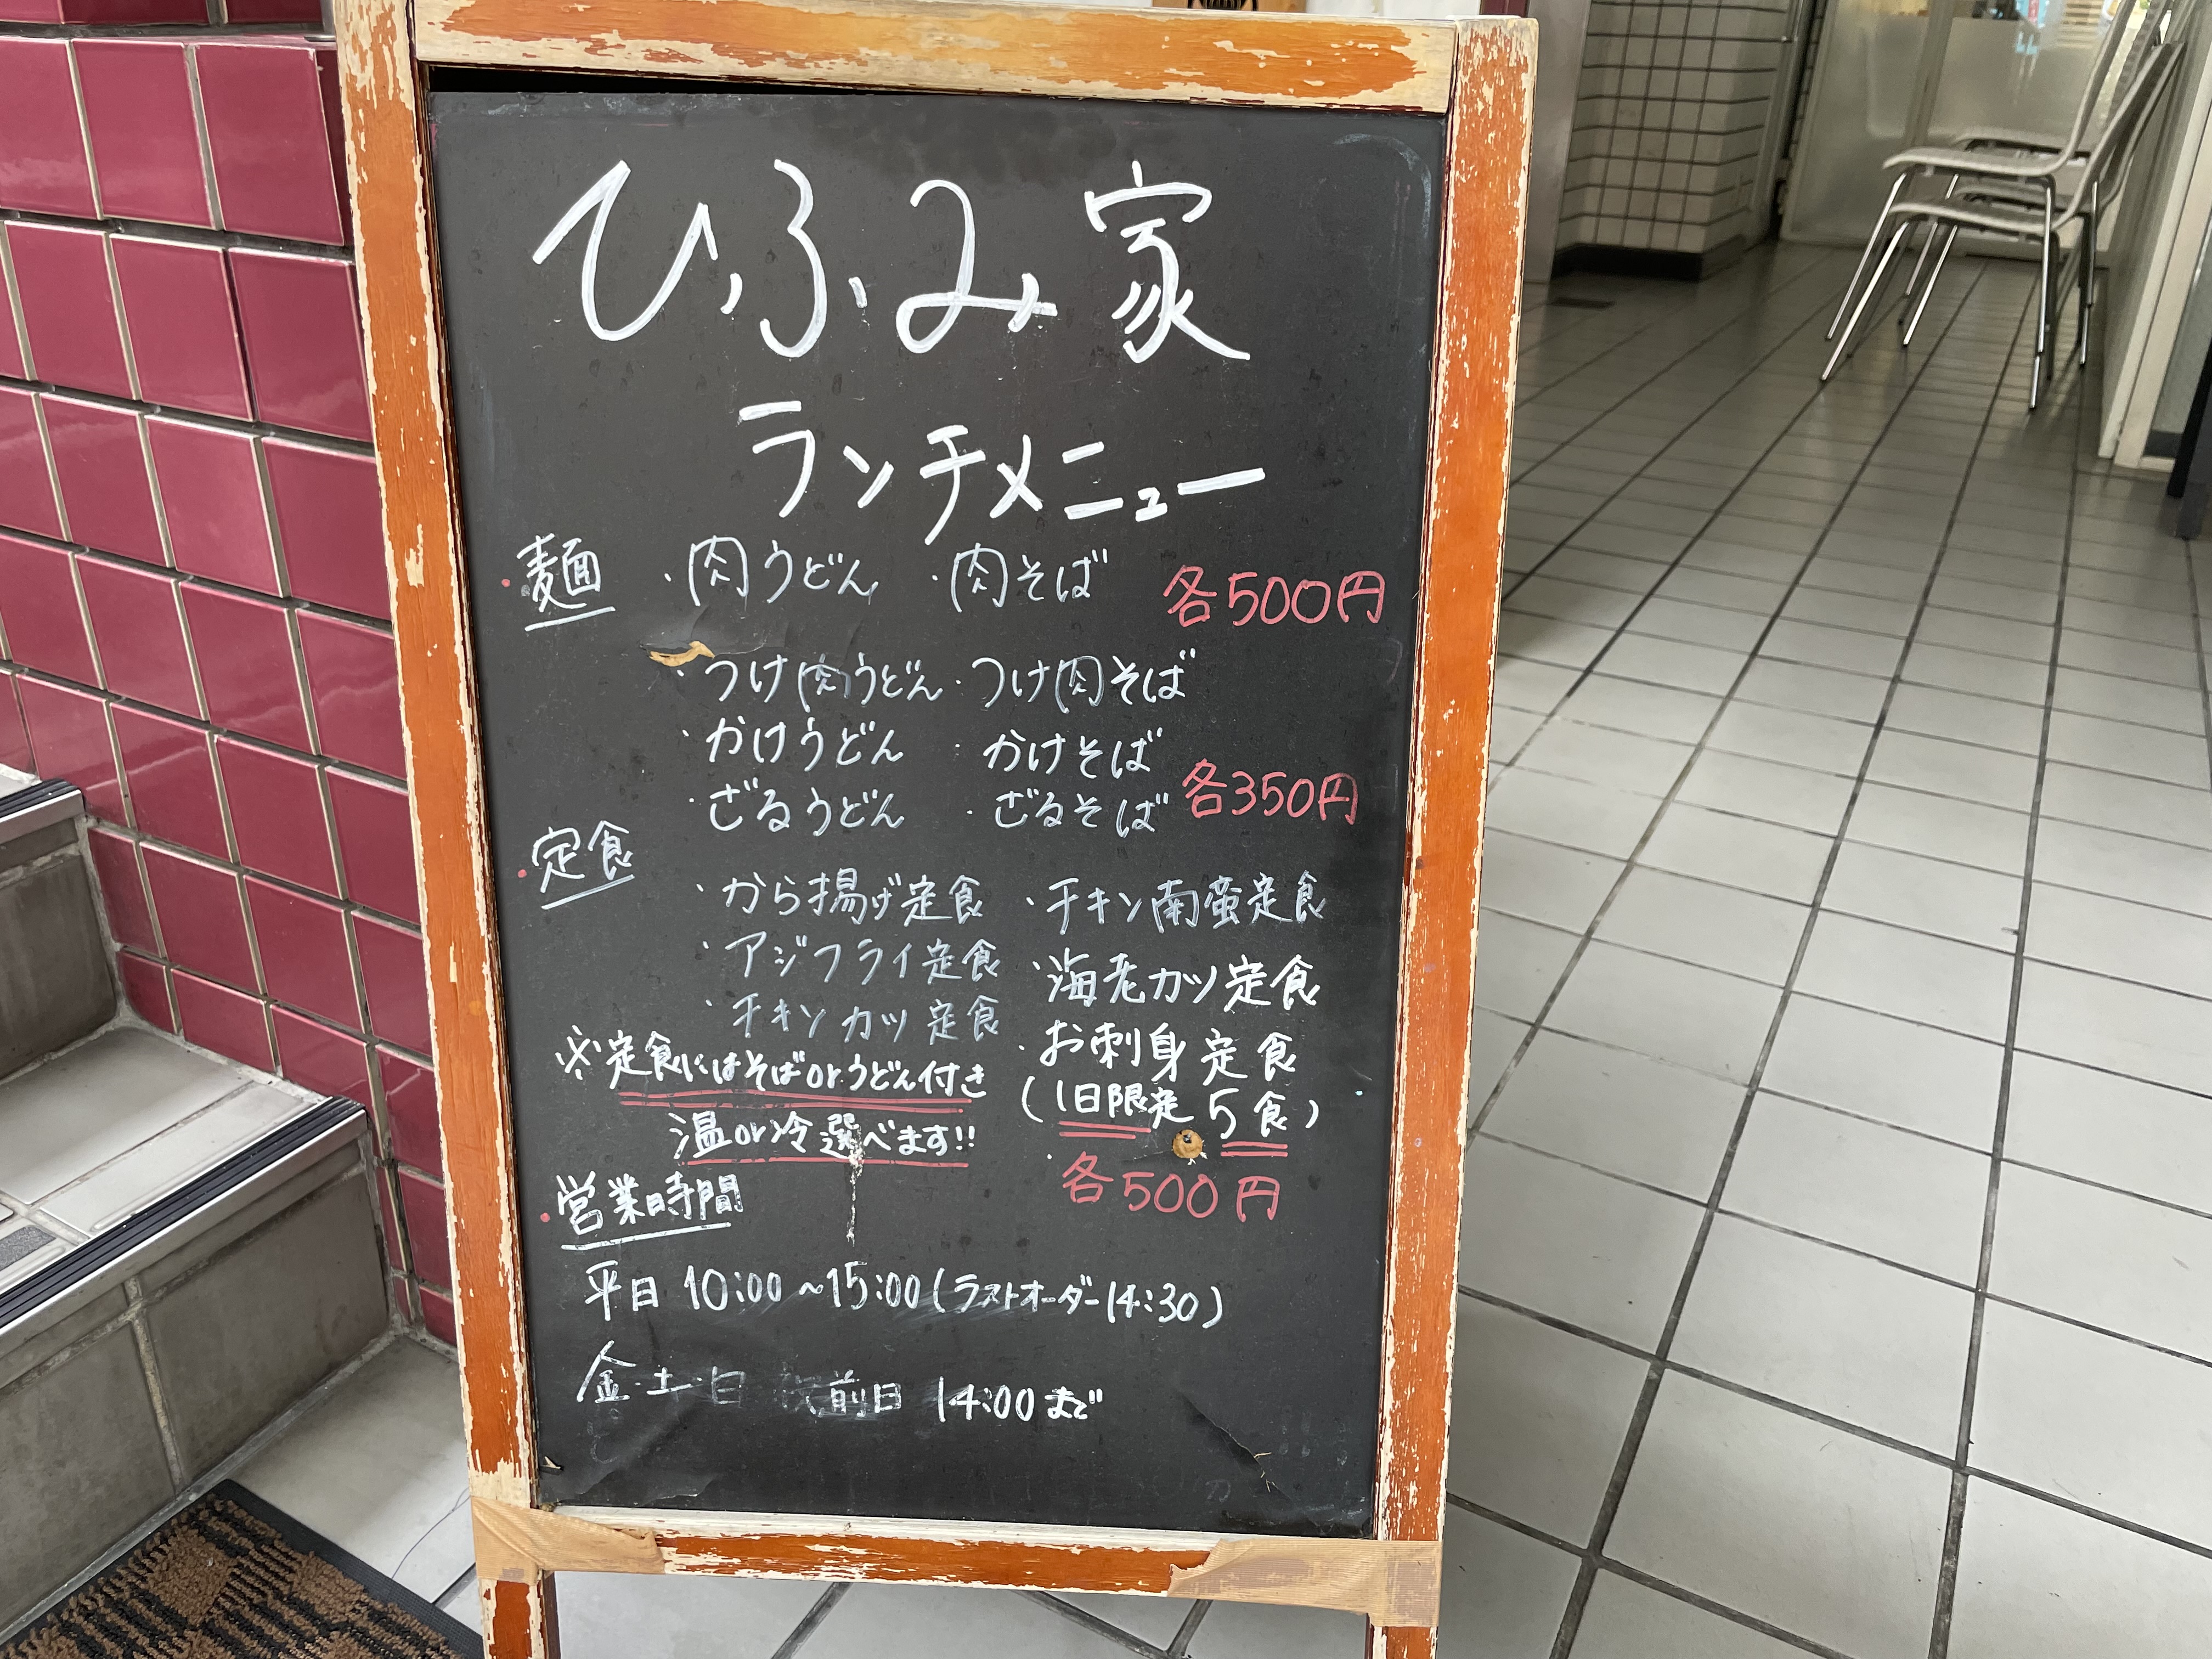 ひふみ家
ランチメニュー
・麺 ・肉うどん ・肉そば 各500円
・つけ肉うどん ・つけ肉そば
・かけうどん ・かけそば
・ざるうどん ・ざるそば 各350円
・定食
・から揚げ定食 ・チキン南蛮定食
・アジフライ定食 ・海老カツ定食
・チキンカツ定食 ・お刺身定食
※定食にはそばorうどん付き (1日限定5食)
温or冷選べます!!
各500円
・営業時間
平日 10:00～15:00(ラストオーダー14:30)
金・土・日 前日 14:00まで